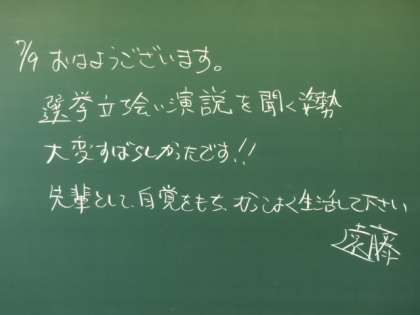 7/9 おはようございます。
選挙立ち会い演説を聞く姿勢
大変すばらしかったです!!
先輩として、自覚をもち、かっこよく生活して下さい
遠藤